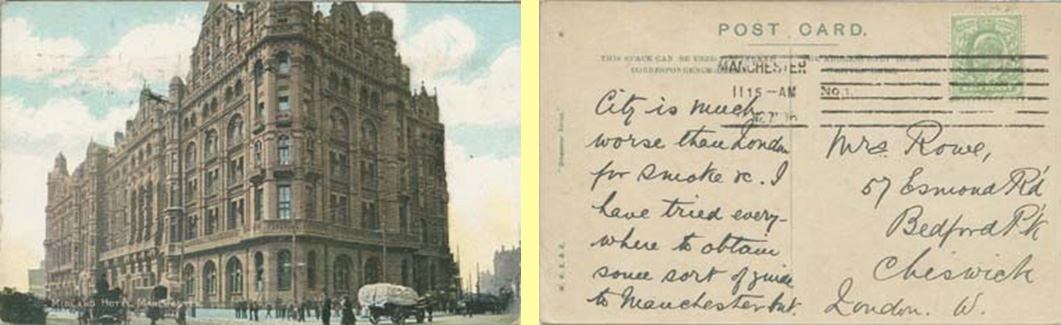 MIDLAND HOTEL, MANCHESTER
POST CARD.
THIS SPACE CAN BE USED
CORRESPONDENCE
MANCHESTER
11 15 - AM
No. 1.
City is much
worse than London
for smoke &c. I
have tried every-
where to obtain
some sort of guide
to Manchester but.
Mrs. Rowe,
57 Esmond Rd
Bedford Pk
Chiswick
London. W.